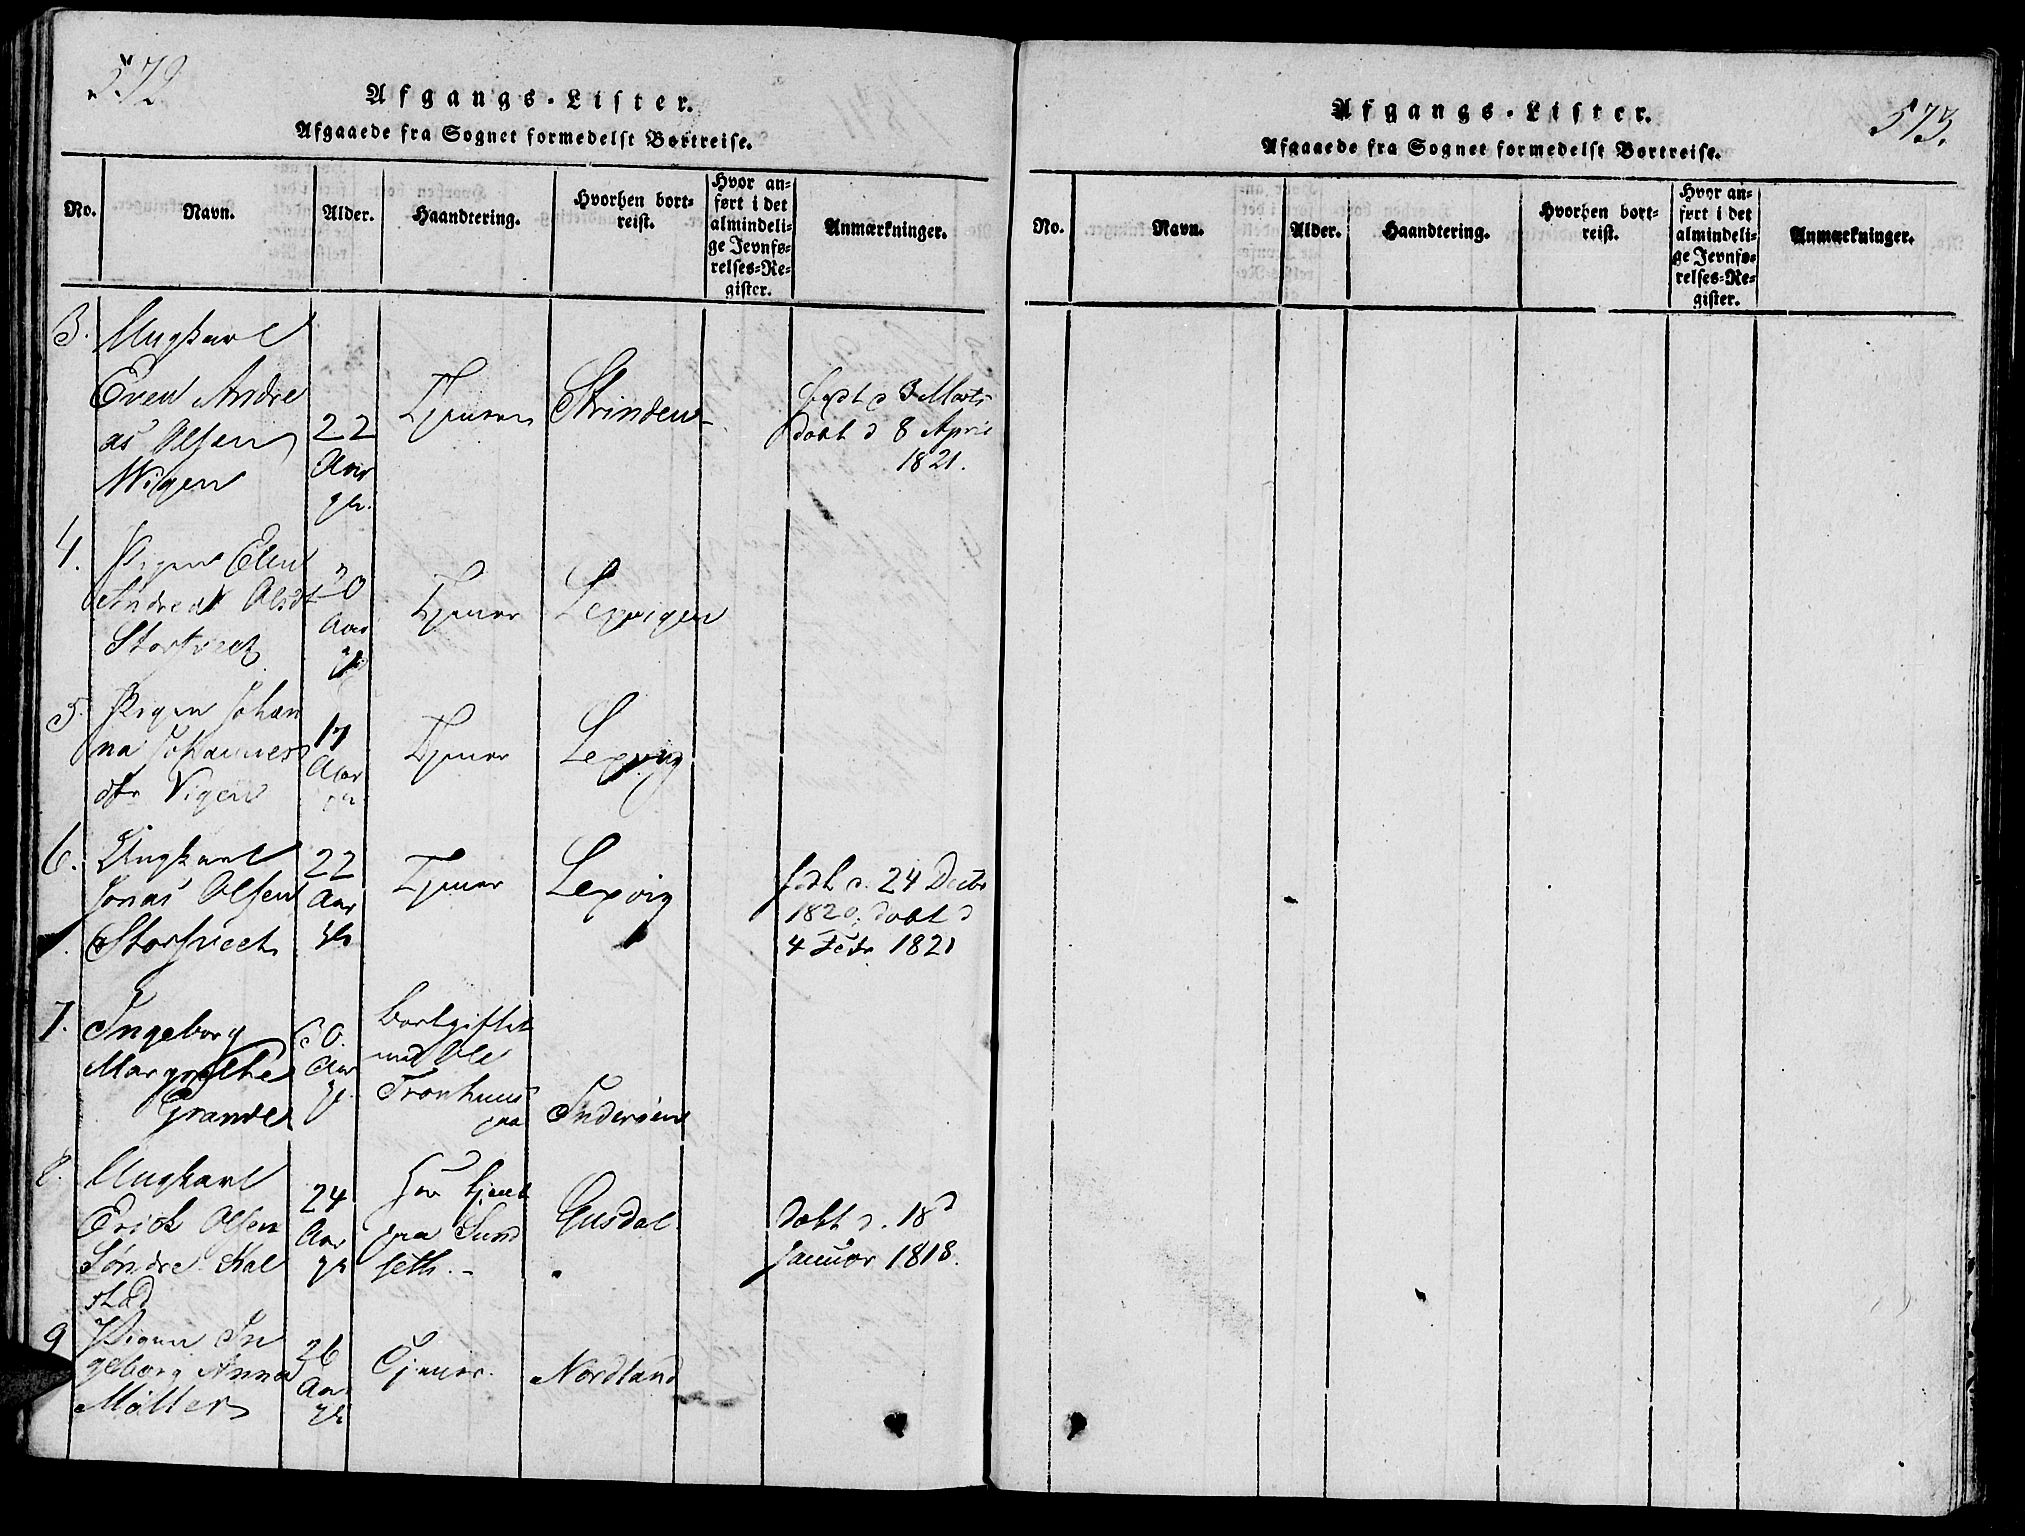 572
Afgangs-Lister.
Afgaaede fra Sognet formedelst Bortreise.
No.
Navn.
Alder.
Haandtering.
Hvorhen bort=
reist.
Hvor an=
ført i det
almindeli=
ge Jevnfø=
relses=Re=
gister.
Anmærkninger.
3.
Ungkarl
Even Andre
as Olsen
Wigen
22
Aar
gl.
Tjener
Strinden
født d 3 Marts
døbt d 8 April
1821.
4.
Pigen Elen
Andrea Olsdt
Stortveet
20
Aar
gl
Tjener
Lexvigen
5.
Pigen Johan
na Johannes
dtr Vigen
17
Aar
gl.
Tjener
Lexvig
6.
Ungkarl
Jonas Olsen
Stortveet
22
Aar
gl.
Tjener
Lexvig
født d. 24 Decbr
1820. døbt d
4 Febr 1821
7.
Ingeborg
Margrethe
Grande
30.
Aar
gl.
Bortgiftet
med Ole
Tronhuus
paa
Inderøen
8.
Ungkarl
Erick Olsen
Søndre Kal
stad
24
Aar
gl
har tjent
paa Sund
seth.
Gusdal
døbt d. 18d
Januar 1818.
9
Pigen In
geborg Anna
Møller
26
Aar
gl
Tjener.
Nordland
573.
Afgangs-Lister.
Afgaaede fra Sognet formedelst Bortreise.
No.
Navn.
Alder.
Haandtering.
Hvorhen bort=
reist.
Hvor an=
ført i det
almindeli=
ge Jevnfø=
relses=Re=
gister.
Anmærkninger.